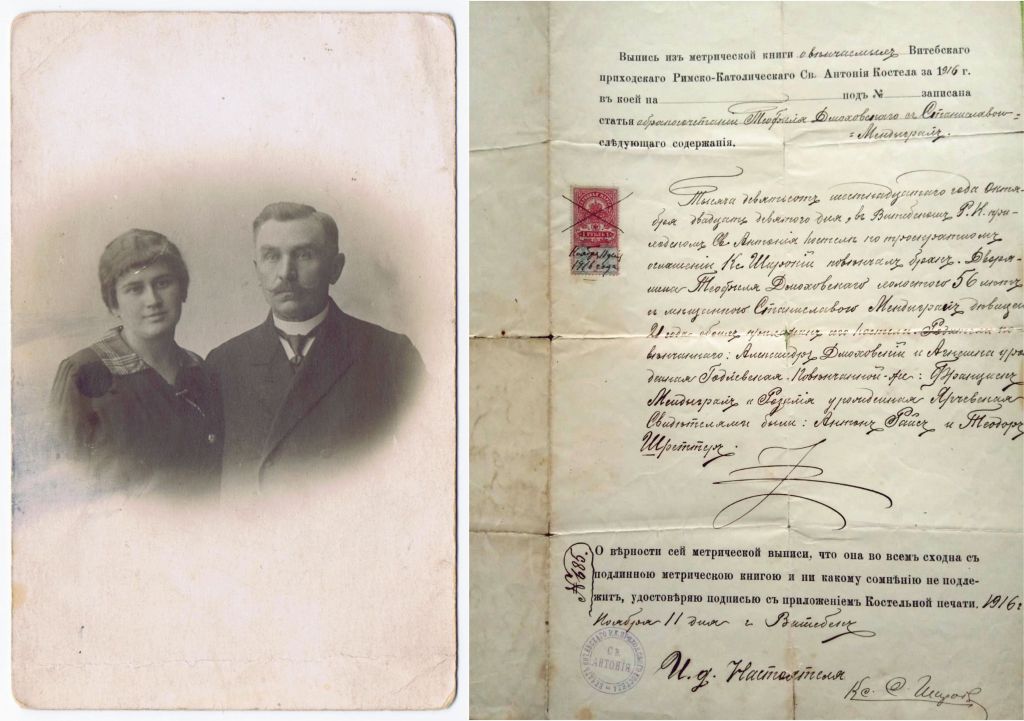 Выпись изъ метрической книги о вѣнчаемыхъ Витебскаго
приходскаго Римско-Католическаго Св. Антонія Костела за 1916 г.
въ коей на подъ № записана
статья о бракосочетаніи Теофиля Дмоховскаго съ Станиславою
Мендыграмъ.
слѣдующаго содержанія.
Тысяча девятьсотъ шестнадцатаго года Октя-
бря двадцать девятаго дня, въ Витебскомъ Р. К. при-
ходскомъ Св. Антонія костелѣ по троекратномъ
оглашеніи Кс. повѣнчалъ бракъ. Дворя-
нина Теофиля Дмоховскаго холостого 56 лѣтъ
съ мѣщанкою Станиславою Мендыграмъ дѣвицею
21 года обоихъ прихожанъ костела. Родители по-
вѣнчаннаго: Александръ Дмоховскій и Агнешка уро-
жденная Годлевская. Повѣнчанной-же: Францискъ
Мендыграмъ и Розалія урожденная Ярчевская
Свидѣтелями были: Антонъ Райсъ и Теодоръ
Шреттеръ.
1 РУБЛЬ 1
Ноября 11 дня
1916 года
О вѣрности сей метрической выписи, что она во всемъ сходна съ
подлинною метрическою книгою и ни какому сомнѣнію не подле-
житъ, удостовѣряю подписью съ приложеніемъ Костельной печати. 1916 г
Ноября 11 дня г. Витебскъ
№ 685
Св.
АНТОНІЯ
И. д. Настоятеля
Кс. С.